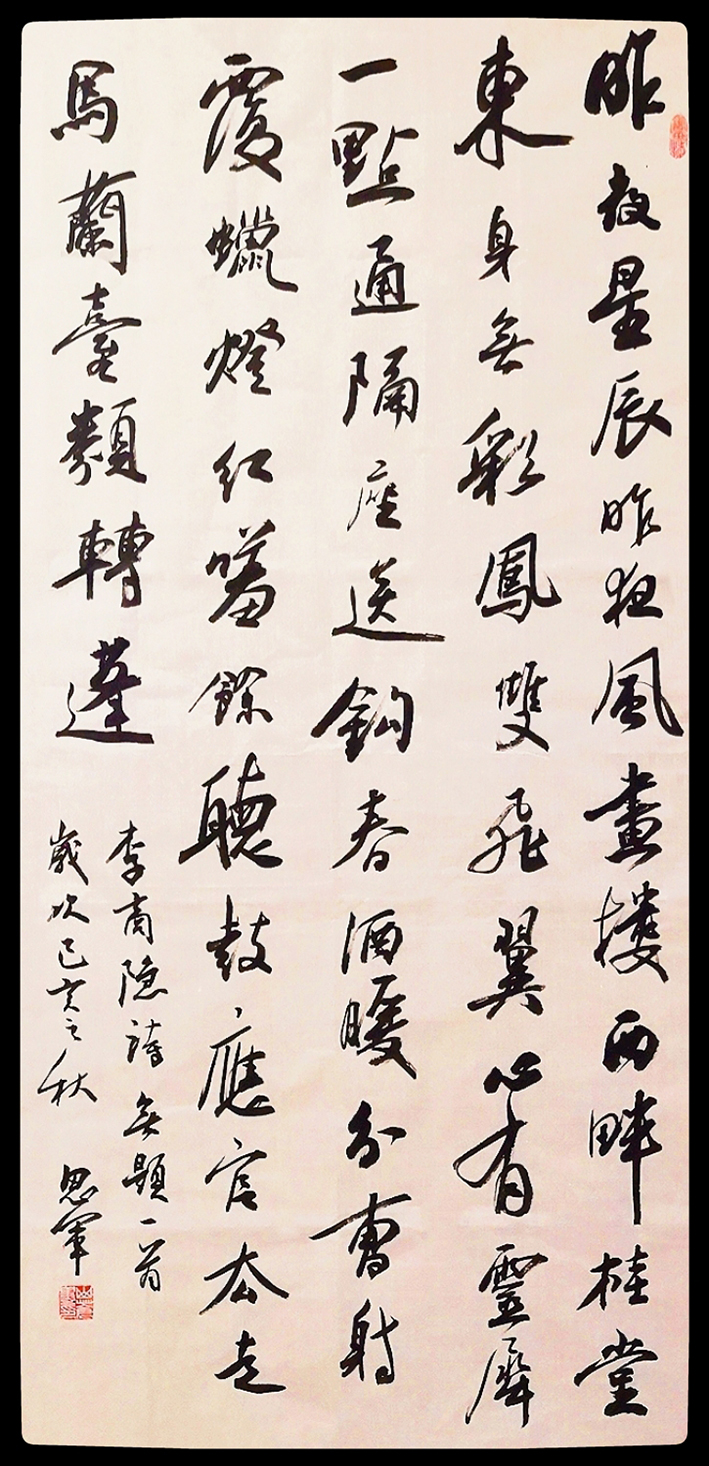 昨夜星辰昨夜風畫樓西畔桂堂
東身無彩鳳雙飛翼心有靈犀
一點通隔座送鈎春酒暖分曹射
覆蠟燈紅嗟餘聽鼓應官去走
馬蘭臺類轉蓬
李商隐詩無題一首
歲次己亥之秋 思軍